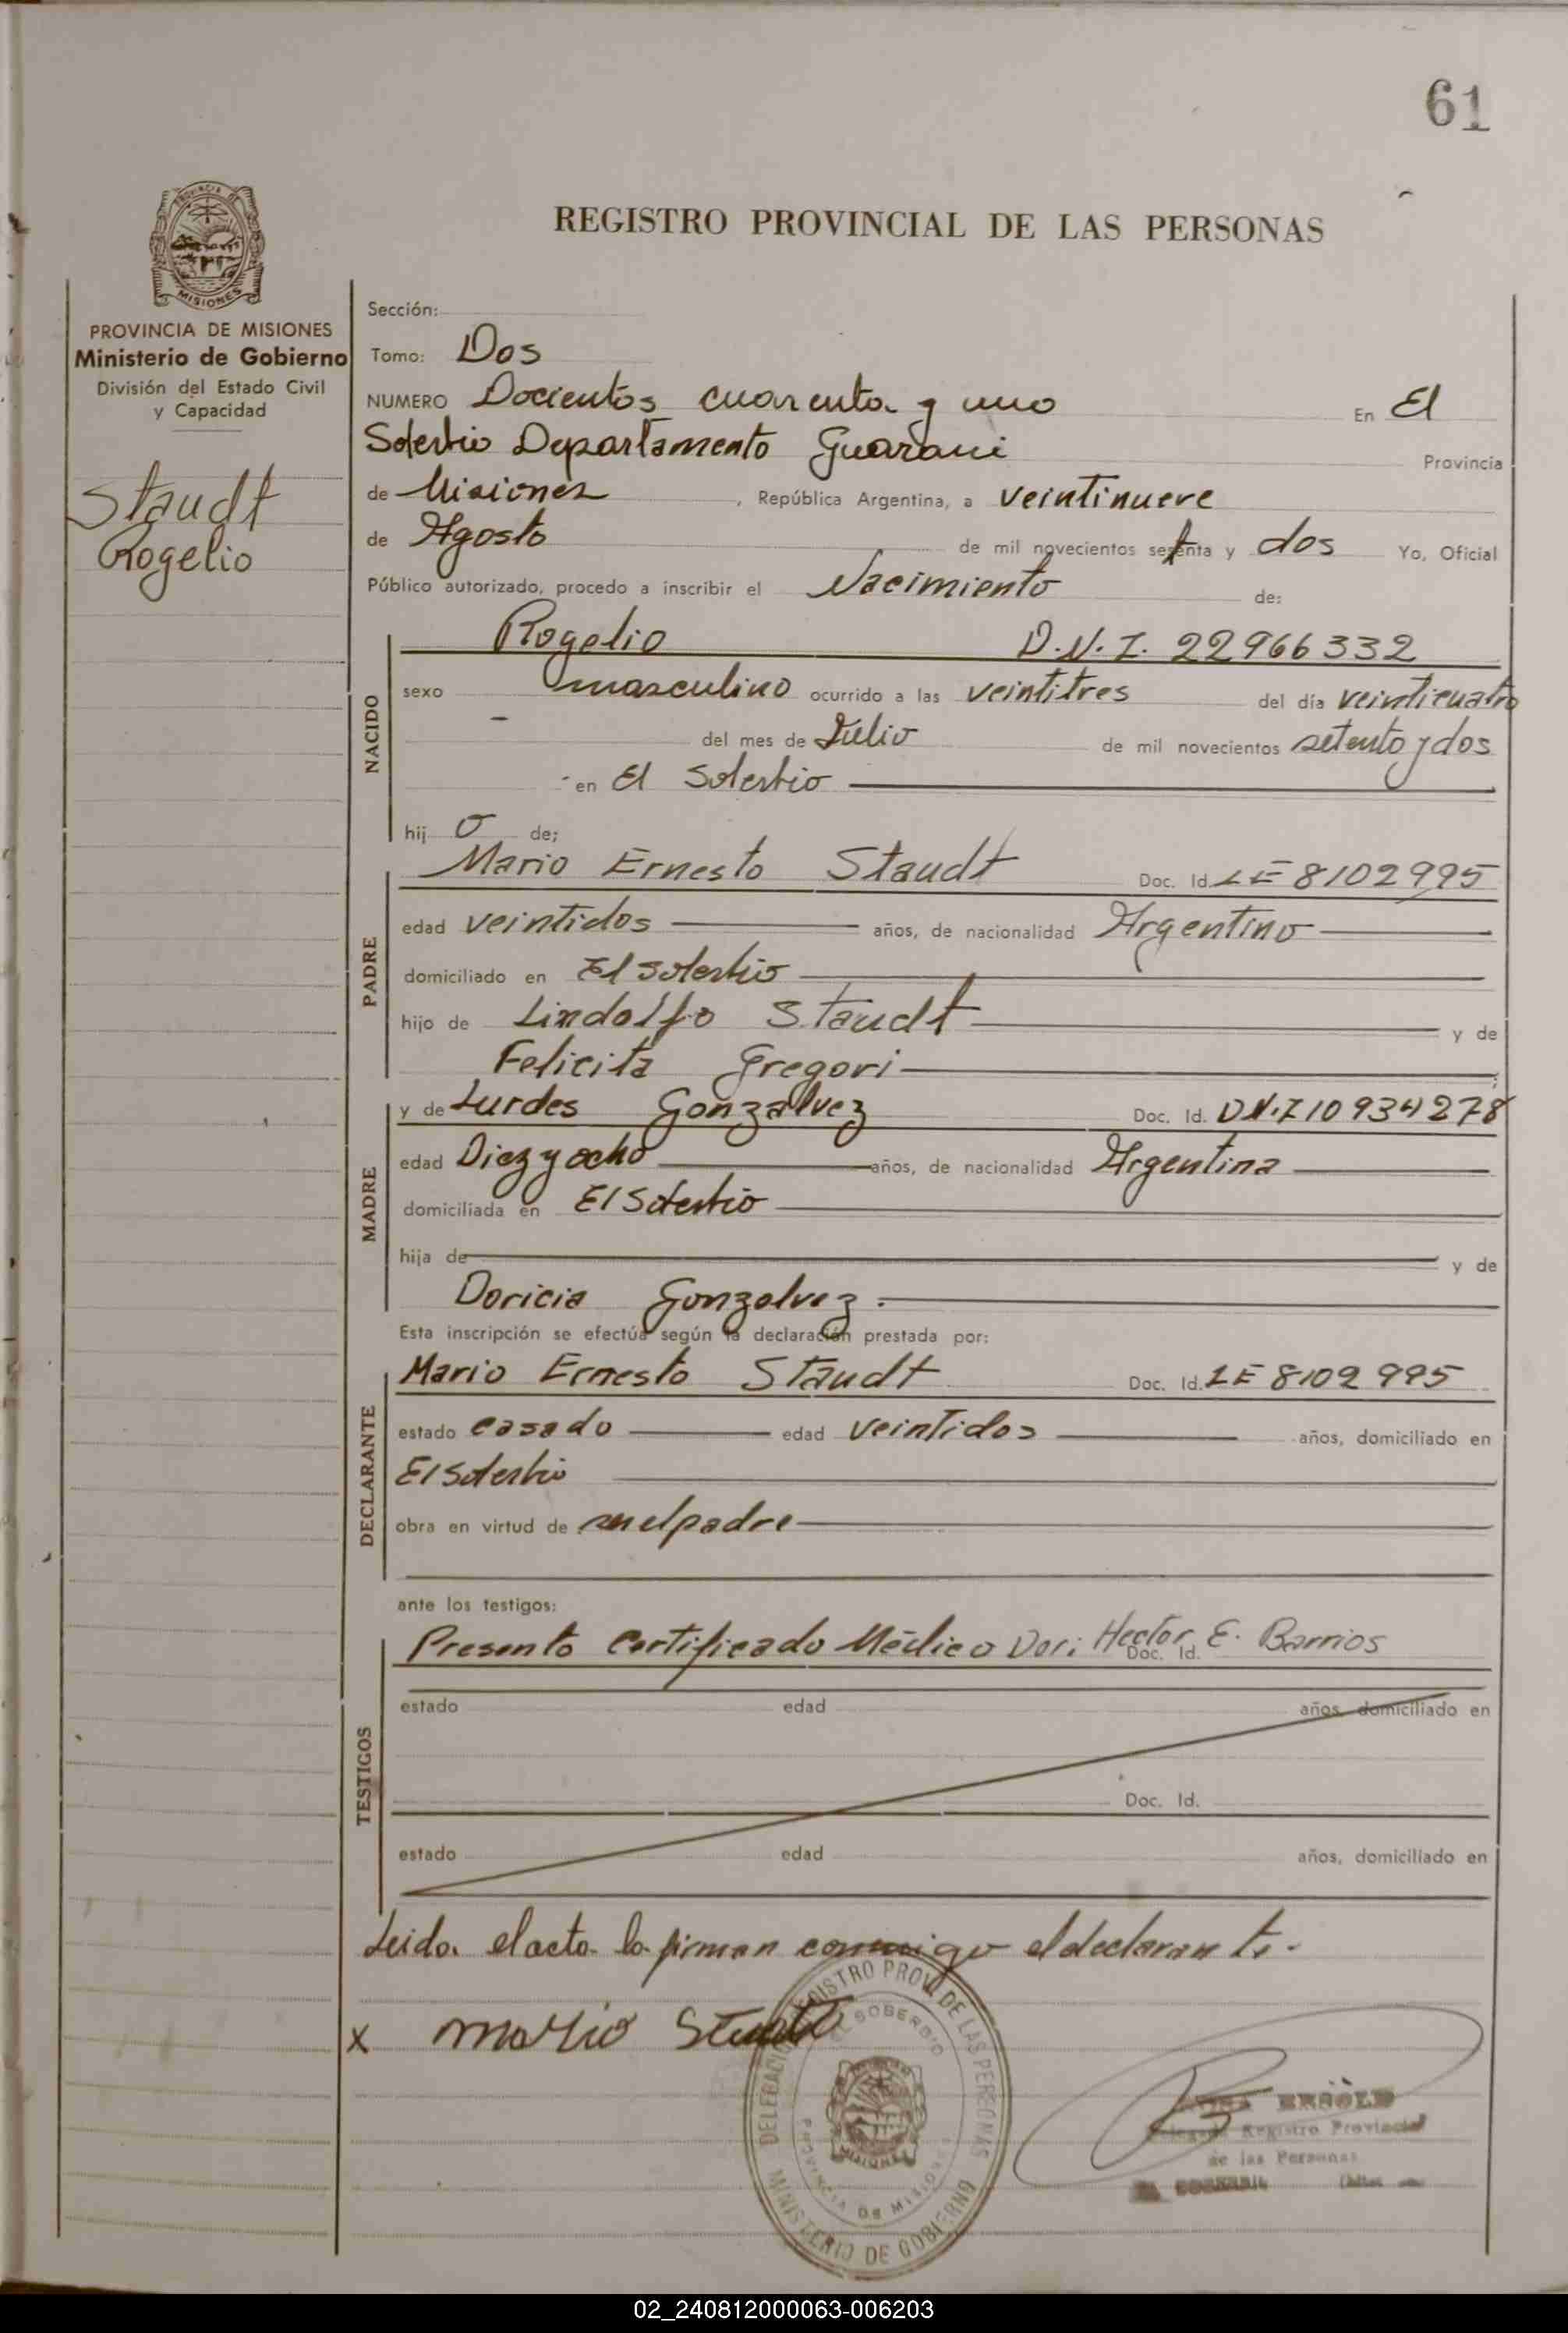 61
REGISTRO PROVINCIAL DE LAS PERSONAS
PROVINCIA DE MISIONES
Ministerio de Gobierno
División del Estado Civil
y Capacidad
Staudt
Rogelio
Sección:
Tomo: Dos
NUMERO Docientos cuarenta y uno En El
Soberbio Departamento Guarani Provincia
de Misiones, República Argentina, a veintinueve
de Agosto de mil novecientos setenta y dos Yo, Oficial
Público autorizado, procedo a inscribir el Nacimiento de:
NACIDO
Rogelio D.N.I. 22966332
sexo masculino ocurrido a las veintitres del día veinticuatro
del mes de Julio de mil novecientos setenta y dos
en El Soberbio
hijo de;
PADRE
Mario Ernesto Staudt Doc. Id. LE 8102995
edad veintidos años, de nacionalidad Argentino
domiciliado en El Soberbio
hijo de Lindolfo Staudt y de
Felicita Gregori
MADRE
y de Lurdes Gonzalvez Doc. Id. DNI 10934278
edad Diez y ocho años, de nacionalidad Argentina
domiciliada en El Soberbio
hija de y de
Doricia Gonzalvez.
Esta inscripción se efectúa según la declaración prestada por:
DECLARANTE
Mario Ernesto Staudt Doc. Id. LE 8102995
estado casado edad veintidos años, domiciliado en
El Soberbio
obra en virtud de ser el padre
ante los testigos:
TESTIGOS
Presento Certificado Médico Dor: Hector E. Barrios Doc. Id.
estado edad años, domiciliado en
Doc. Id.
estado edad años, domiciliado en
Leida el acta la firman conmigo el declarante.
x mario Staudt
DELEGACION REGISTRO PROV. DE LAS PERSONAS
EL SOBERBIO
MISIONES
PROVINCIA DE MISIONES
MINISTERIO DE GOBIERNO
Registro Provincial
de las Personas
02_240812000063-006203